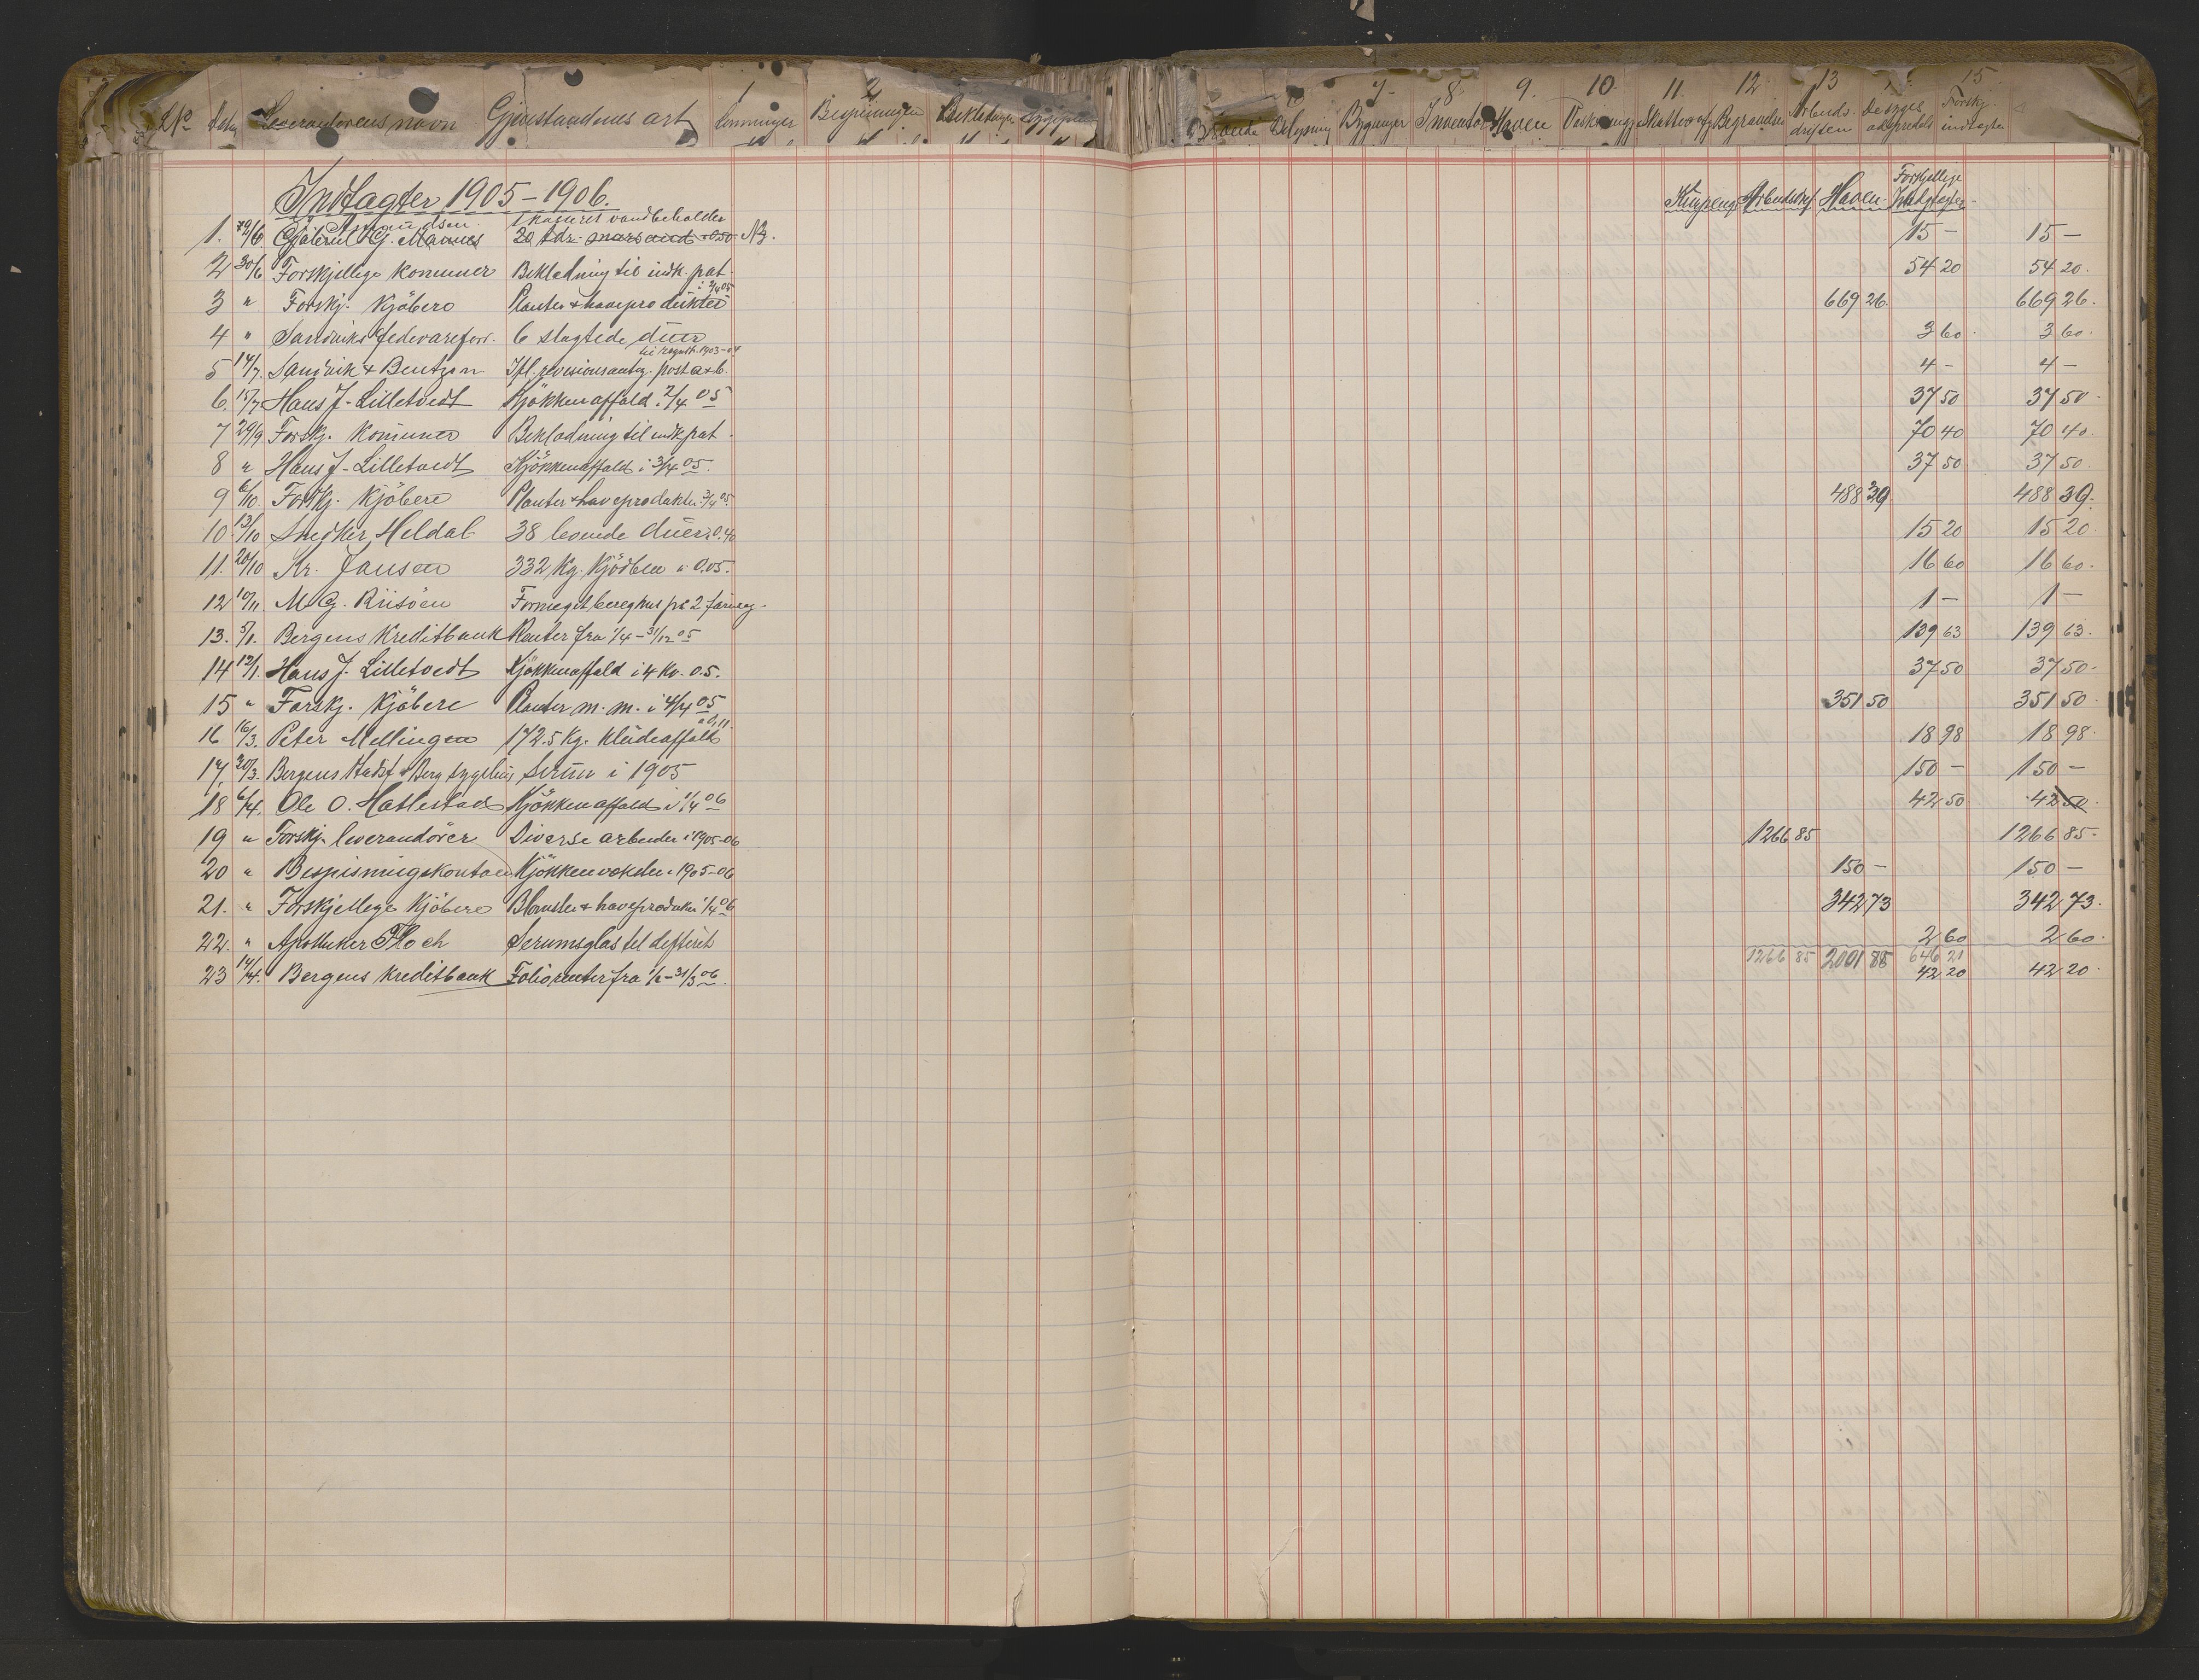 No Dato Leverandörens navn Gjenstandens art 1 Lønninger 2 Bespisningen Beklædningen Sygepleien Brænde 6 Belysning 7 Bygninger 8 Inventar 9. Haven 10. Vaskning 11. Skatter og afg 12 Begravelser 13 Arbeidsdriften 15 Forskj. indtægter
Indtægter 1905-1906.
Kurpenge Arbeidsdrf. Haven. Forskjellige Indtægter.
Amundsen. 1 kasseret vandbeholder
1. 29/6 G. Manus 20 tdr. a 0.50. 15 - 15 -
2 30/6 Forskjellige Komuner Beklædning til indk. pat. 54 20 54 20.
3 " Forskj. Kjöbere Planter & haveprodukter i 2/4 05 669 26. 669 26.
4 " Sandviks fedevareforr. 6 slagtede duer 3 60. 3 60.
5 14/7. Sandvik & Bentzon Ifl. revisionsantg. post a & b. til regnsk. 1903-04 4 - 4 -
6. 15/7 Hans J. Lilletvedt Kjökkenaffald i 2/4 05 37 50 37 50.
7 29/9 Forskj. Komuner Beklædning til indk pat. 70 40 70 40.
8 " Hans J. Lilletvedt Kjökkenaffald i 3/4 05. 37 50 37 50.
9 6/10. Forskj. Kjöbere Planter & haveprodukter 3/4 05. 488 39. 488 39.
10. 13/10 Snedker Heldal 38 levende duer a 0.40 15 20 15 20.
11. 20/10 Kr. Jansen 332 Kg. Kjödben a 0.05. 16 60 16 60.
12 10/11 M. G. Riisöen Formeget beregnet på 2 1 - 1 -
13. 5/1. Bergens Kreditbank Renter fra 1/4 - 31/12 05 139 63 139 63.
14 12/1. Hans J. Lilletvedt Kjökkenaffald i 4 Kv. 05. 37 50 37 50.
15 " Forskj. Kjöbere Planter m. m. i 4/4 05 351 50 351 50.
16 16/3. Peter Mellingen 172.5 Kg. kludeaffald a 0,11. 18 98 18 98.
17. 20/3. Bergens Stadsf. & Berg. sygehus Serum i 1905 150 - 150 -
18 6/4. Ole O. Hatlestad Kjökkenaffald i 1/4 06 42 50 42 50.
19 " Forskj. leverandörer Diverse arbeider i 1905-06 1266 85 1266 85.
20 " Bespisningskontoen Kjökkenvekster i 1905-06 150 - 150 -
21. " Forskjellige Kjöbere Blomster & haveprodukter 1/4 06 342 73 342 73.
22. " Apotheker Floch Serumsglas til defterit 2 60 2 60.
1266 85 2001 88 646 21
23 14/4. Bergens Kreditbank Foliorenter fra 1/1 - 31/3 06. 42 20 42 20.